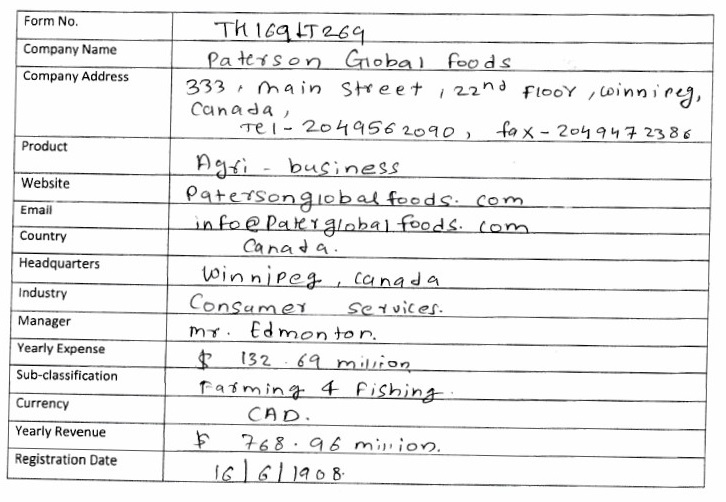 Form No. TH169LT269
Company Name Paterson Global foods
Company Address 333, main street, 22nd Floor, winnipeg,
Canada,
Tel - 2049562090, fax - 2049472386
Product Agri - business
Website Patersonglobalfoods. com
Email info@Paterglobalfoods. com
Country Canada.
Headquarters Winnipeg, Canada
Industry Consumer services.
Manager mr. Edmonton.
Yearly Expense $ 132.69 million
Sub-classification Farming & Fishing.
Currency CAD.
Yearly Revenue $ 768.96 million.
Registration Date 16/6/1908.